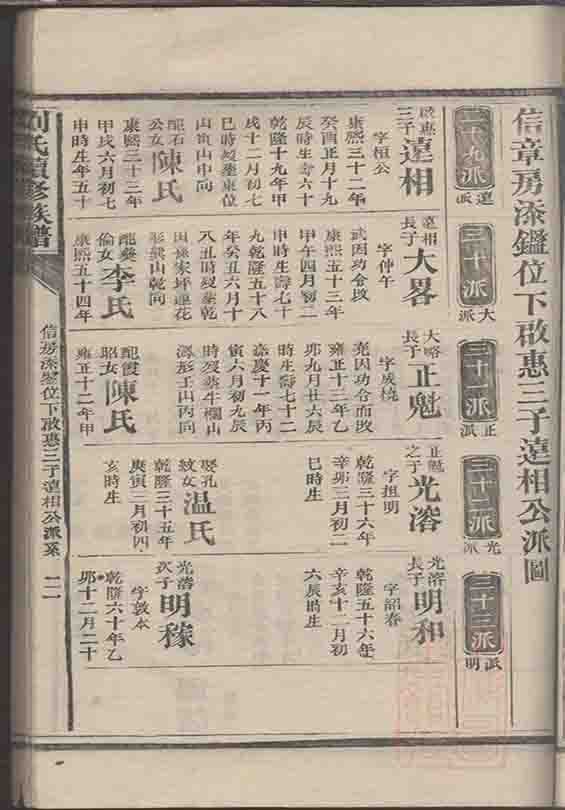 信章房添鑑位下啟惠三子遠相公派圖
二十九派
遠派
三十派
大派
三十一派
正派
三十二派
光派
三十三派
明派
啟惠
三子
遠相
字桓公
康熙三十二年
癸酉正月十九
辰時生壽六十
乾隆十九年甲
戌十二月初七
巳時歿葬東位
山寅山中向
配石
公女
陳氏
康熙三十三年
甲戌六月初七
申時生年五十
遠相
長子
大畧
字仲午
武因功令改
康熙五十三年
甲午四月初二
申時生壽七十
九乾隆五十八
年癸丑六月十
八丑時歿葬乾
田孫家坪蓮花
形巽山乾向
配葵
倫女
李氏
康熙五十四年
大略
長子
正魁
字成橈
堯因功令而改
雍正十三年乙
卯九月廿六辰
時生壽七十二
嘉慶十一年丙
寅六月初九辰
時歿葬牛欄山
澤形壬山丙向
配霞
昭女
陳氏
雍正十二年甲
正魁
之子
光溶
字担明
乾隆三十六年
辛卯三月初二
巳時生
娶孔
紋女
温氏
乾隆三十五年
庚寅三月初四
亥時生
光溶
長子
明和
字韶春
乾隆五十六年
辛亥十二月初
六辰時生
光溶
次子
明稼
字敦本
乾隆六十年乙
卯十二月二十
劉氏續修族譜
信房添鑑位下啟惠三子遠相公派系
二